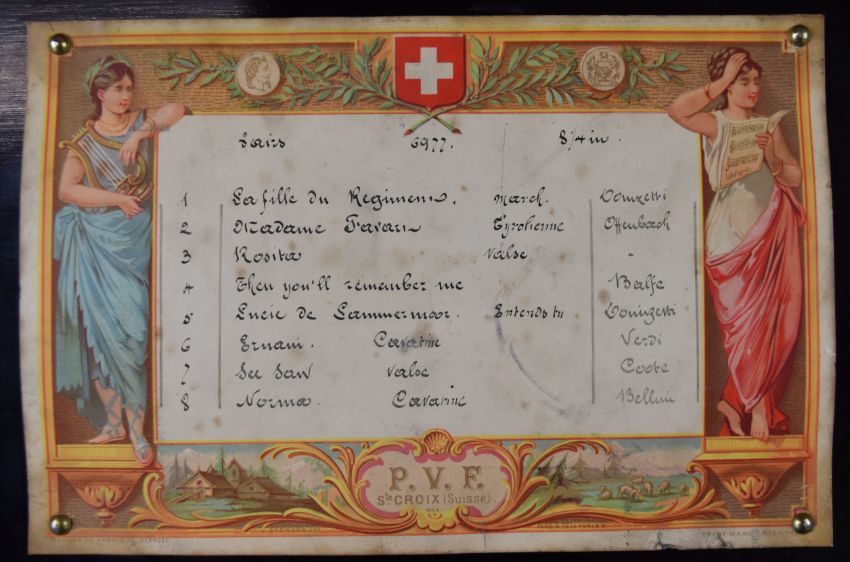 8 airs 6977. 8 1/4 in.
1 La fille du Regiment. March. Donizetti
2 Madame Favart Tyrolienne Offenbach
3 Rosita Valse "
4 Then you'll remember me Balfe
5 Lucie de Lammermoor. Entends tu Donizetti
6 Ernani. Cavatine Verdi
7 See Saw Valse Coote
8 Norma. Cavatine Bellini
P. V. F.
Ste CROIX (Suisse).
TRADE MARK